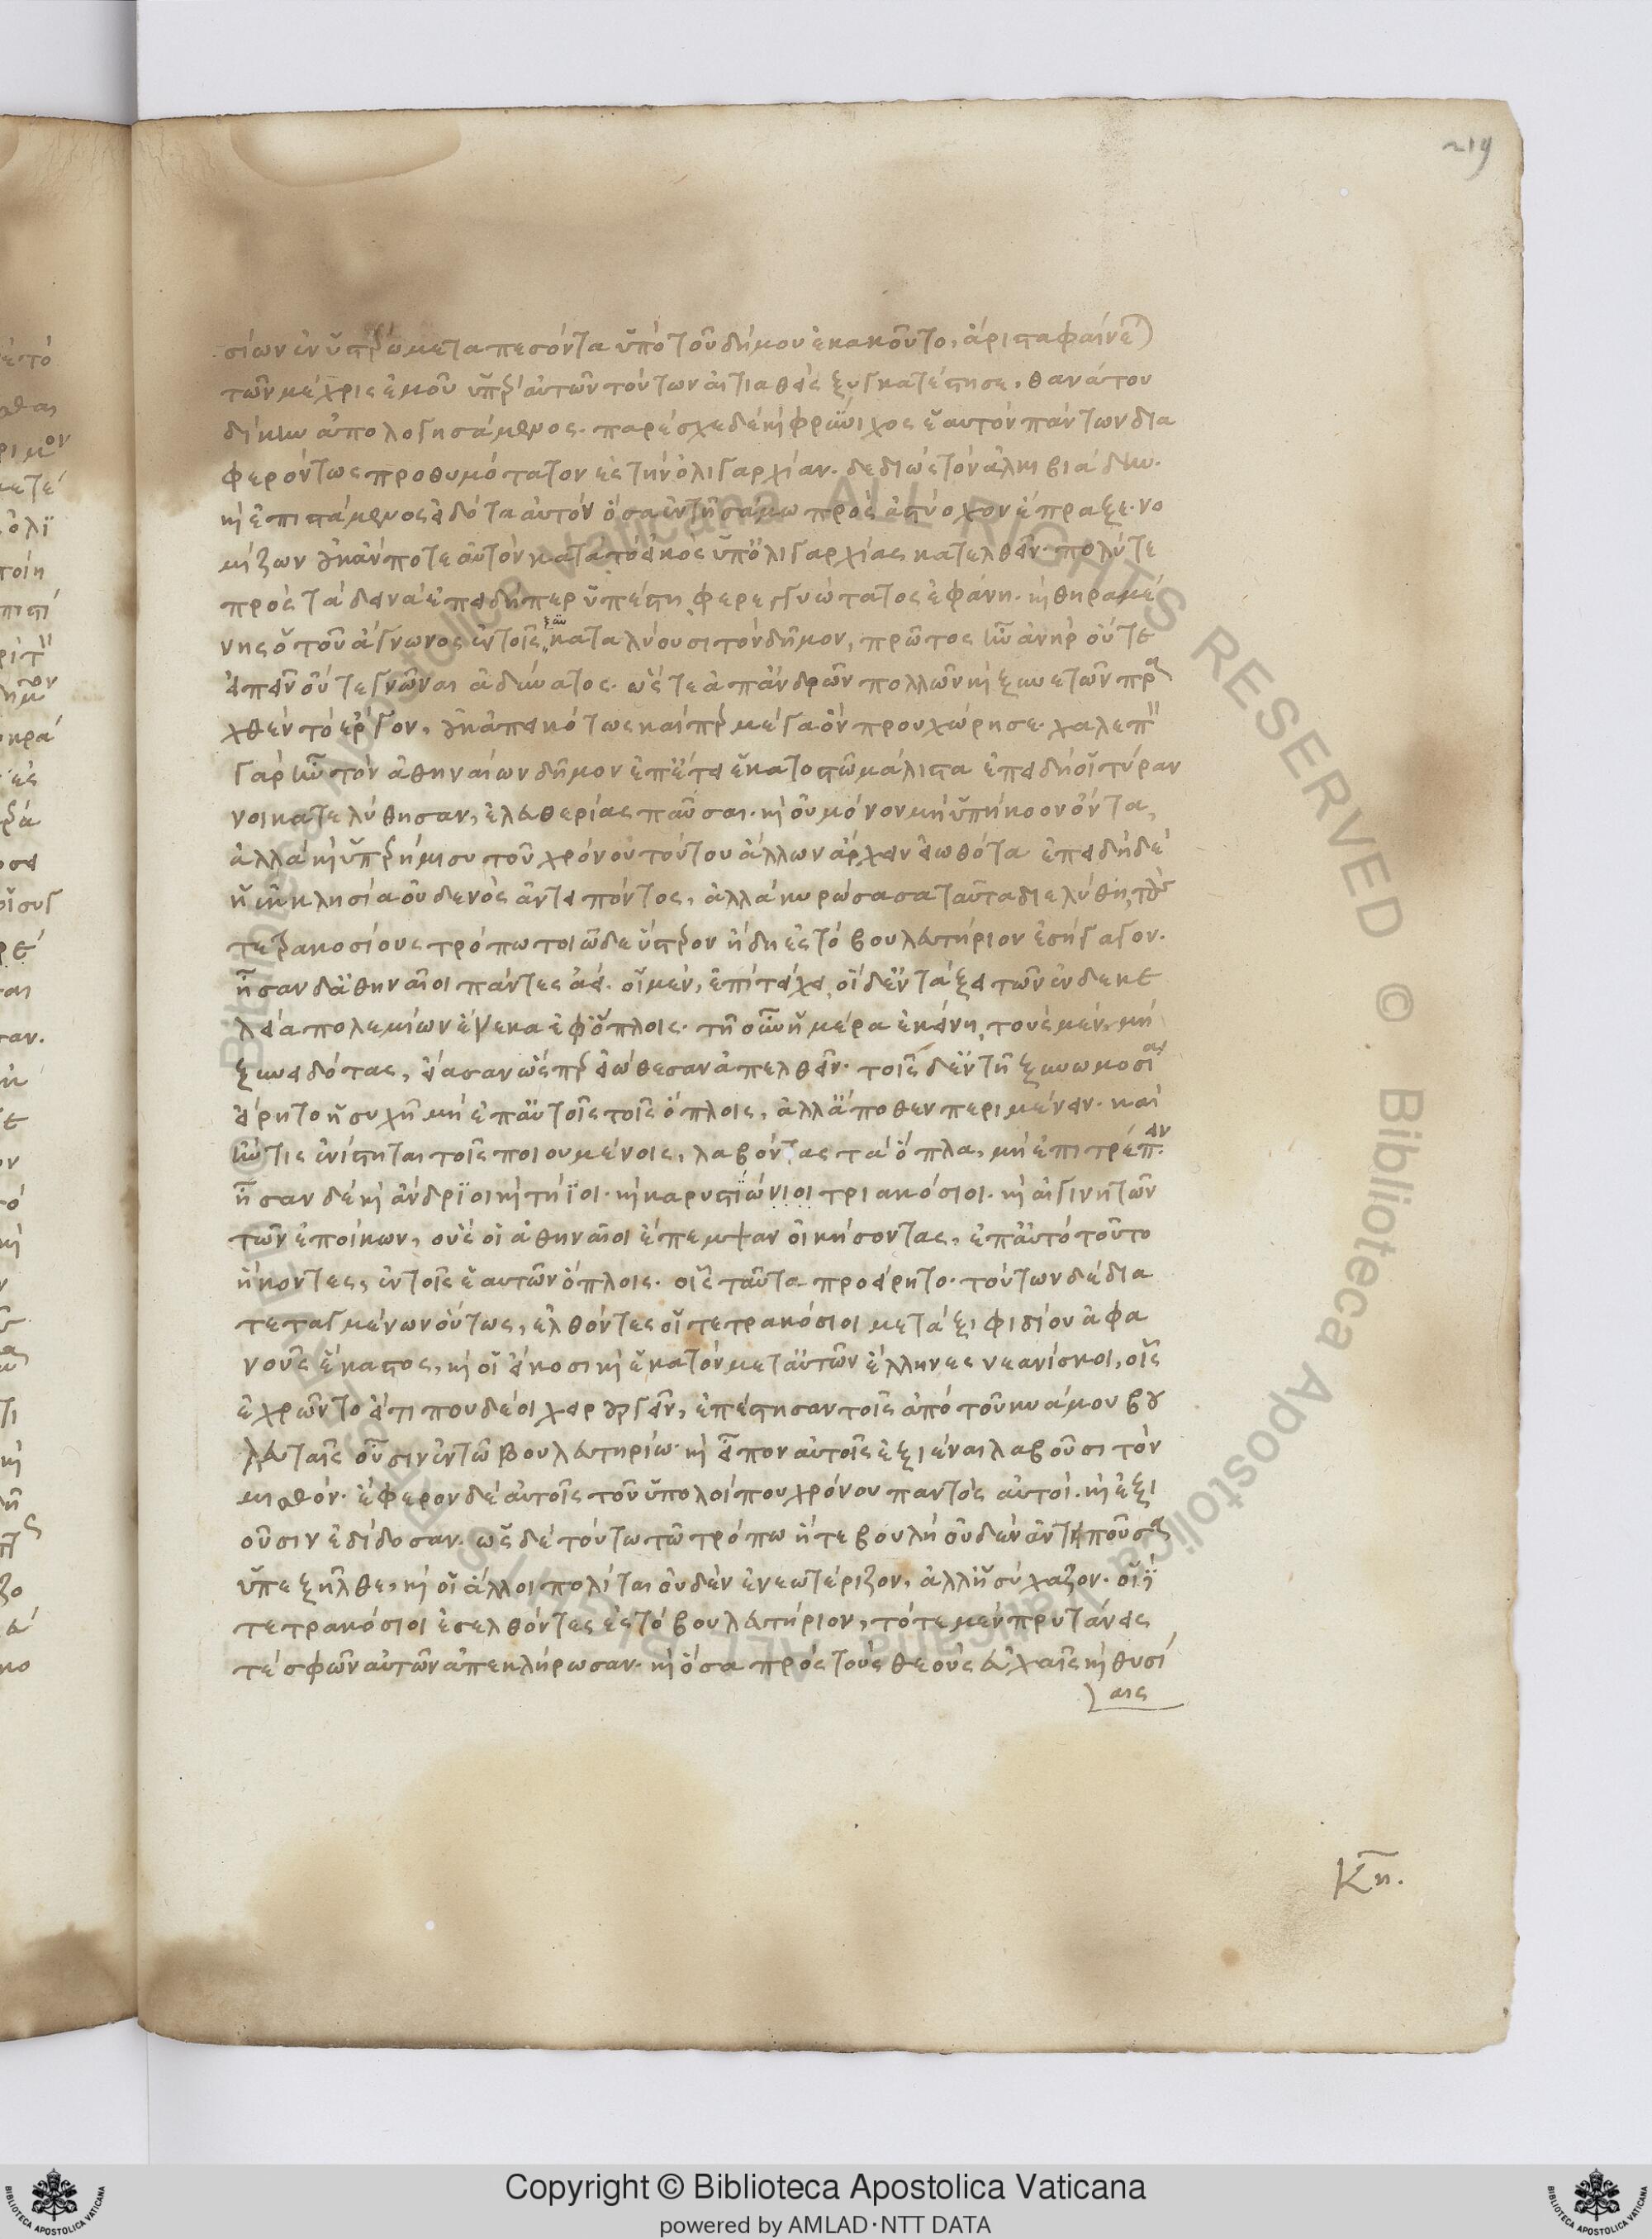 219
σίων ἐν ὑστέρω μεταπεσόντα ὑπὸ τοῦ δήμου ἐκακοῦντο, ἄριστα φαίνεται
τῶν μέχρις ἐμοῦ ὑπὲρ αὐτῶν τούτων αἰτιαθεὶς ξυγκατέστησε, θανάτου
δίκην ἀπολογησάμενος. παρέσχε δὲ καὶ φρύνιχος ἑαυτὸν πάντων δια
φερόντως προθυμότατον ἐς τὴν ὀλιγαρχίαν. δεδιὼς τὸν ἀλκιβιάδην.
καὶ ἐπιστάμενος εἰδότα αὐτὸν ὅσα ἐν τῆ σάμω πρὸς ἀστύοχον ἔπραξε. νο
μίζων οὐκ ἄν ποτε αὐτὸν κατὰ τὸ εἰκὸς ὑπ' ὀλιγαρχίας κατελθεῖν. πολύ τε
πρὸς τὰ δεινὰ ἐπειδήπερ ὑπέστη, φερεγγυώτατος ἐφάνη. καὶ θηραμέ
νης ὁ τοῦ ἅγνωνος ἐν τοῖς ξυγκαταλύουσι τὸν δῆμον, πρῶτος ἦν ἀνὴρ οὔτε
εἰπεῖν οὔτε γνῶναι ἀδύνατος. ὥστε ἀπ' ἀνδρῶν πολλῶν καὶ ξυνετῶν πρα
χθὲν τὸ ἔργον, οὐκ ἀπεικότως καίπερ μέγα ὂν προυχώρησε. χαλεπὸν
γὰρ ἦν τὸν ἀθηναίων δῆμον ἐπ' ἔτει ἑκατοστῶ μάλιστα ἐπειδὴ οἱ τύραν
νοι κατελύθησαν, ἐλευθερίας παῦσαι. καὶ οὐ μόνον μὴ ὑπήκοον ὄντα,
ἀλλὰ καὶ ὑπὲρ ἥμισυ τοῦ χρόνου τούτου ἄλλων ἄρχειν εἰωθότα ἐπειδὴ δὲ
ἡ ἐκκλησία οὐδενὸς ἀντειπόντος, ἀλλὰ κυρώσασα ταῦτα διελύθη, τοὺς
τετρακοσίους τρόπω τοιῶδε ὕστερον ἤδη ἐς τὸ βουλευτήριον ἐσήγαγον.
ἦσαν δ' ἀθηναῖοι πάντες ἀεὶ. οἱ μὲν, ἐπὶ τείχει, οἱ δ' ἐν τάξει τῶν ἐν δεκε
λείᾳ πολεμίων ἕνεκα ἐφ' ὅπλοις. τῆ οὖν ἡμέρα ἐκείνη, τοὺς μὲν, μὴ
ξυνειδότας, εἴασαν ὥσπερ εἰώθεσαν ἀπελθεῖν. τοῖς δ' ἐν τῆ ξυνωμοσίαι
εἴρητο ἡσυχῆ μὴ ἐπ' αὐτοῖς τοῖς ὅπλοις, ἀλλ' ἄποθεν περιμένειν. καὶ
ἤν τις ἐνίστηται τοῖς ποιουμένοις, λαβόντας τὰ ὅπλα, μὴ ἐπιτρέπειν.
ἦσαν δὲ καὶ ἄνδριοι καὶ τήϊοι. καὶ καρυστιώνιοι τριακόσιοι. καὶ αἰγινητῶν
τῶν ἐποίκων, οὓς οἱ ἀθηναῖοι ἔπεμψαν οἰκήσοντας, ἐπ' αὐτὸ τοῦτο
ἥκοντες, ἐν τοῖς ἑαυτῶν ὅπλοις. οἷς ταῦτα προείρητο. τούτων δὲ δια
τεταγμένων οὕτως, ἐλθόντες οἱ τετρακόσιοι μετὰ ξιφιδίου ἀφα
νοῦς ἕκαστος, καὶ οἱ εἴκοσι καὶ ἑκατὸν μετ' αὐτῶν ἕλληνες νεανίσκοι, οἷς
ἐχρῶντο εἴ τί που δέοι χειρουργεῖν, ἐπέστησαν τοῖς ἀπὸ τοῦ κυάμου βου
λευταῖς οὖσιν ἐν τῶ βουλευτηρίω. καὶ εἶπον αὐτοῖς ἐξιέναι λαβοῦσι τὸν
μισθόν. ἔφερον δὲ αὐτοῖς τοῦ ὑπολοίπου χρόνου παντὸς αὐτοί. καὶ ἐξι
οῦσιν ἐδίδοσαν. ὡς δὲ τούτω τῶ τρόπω ἥ τε βουλὴ οὐδὲν ἀντειποῦσα
ὑπεξῆλθε, καὶ οἱ ἄλλοι πολῖται οὐδὲν ἐνεωτέριζον, ἀλλ' ἡσύχαζον. οἱ
τετρακόσιοι ἐσελθόντες ἐς τὸ βουλευτήριον, τότε μὲν πρυτάνεις
τέ σφῶν αὐτῶν ἀπεκλήρωσαν. καὶ ὅσα πρὸς τοὺς θεοὺς εὐχαῖς καὶ θυσί
αις
κη.
Biblioteca Apostolica Vaticana ALL RIGHTS RESERVED © Biblioteca Apostolica Vaticana ALL RIGHTS RESERVED
Copyright © Biblioteca Apostolica Vaticana
powered by AMLAD·NTT DATA
BIBLIOTECA APOSTOLICA VATICANA
BIBLIOTECA APOSTOLICA VATICANA